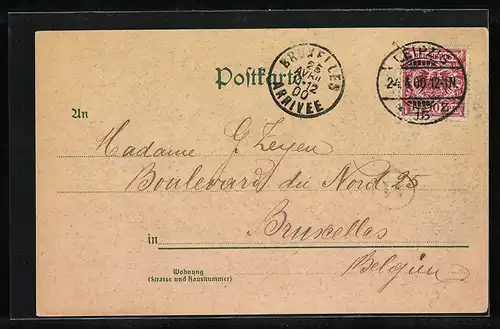 Postkarte
BRUXELLES
25
AVRIL
12
00
ARRIVEE
LEIPZIG
24.4.00.12-1N.
An
Madame G Zeyen
Boulevard du Nord 25
in Bruxelles
Belgien
Wohnung
(Strasse und Hausnummer)